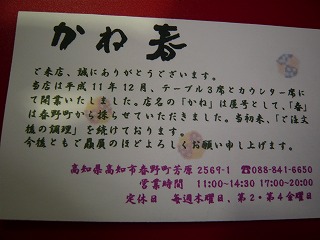 かね春
ご来店、誠にありがとうございます。
当店は平成11年12月、テーブル3席とカウンター席に
て開業いたしました。店名の「かね」は屋号として、「春」
は春野町から採らせていただきました。当初来、「ご注文
後の調理」を続けております。
今後ともご贔屓のほどよろしくお願い申し上げます。
高知県高知市春野町芳原2569-1 ☎088-841-6650
営業時間 11:00~14:30 17:00~20:00
定休日 毎週木曜日、第2・第4金曜日